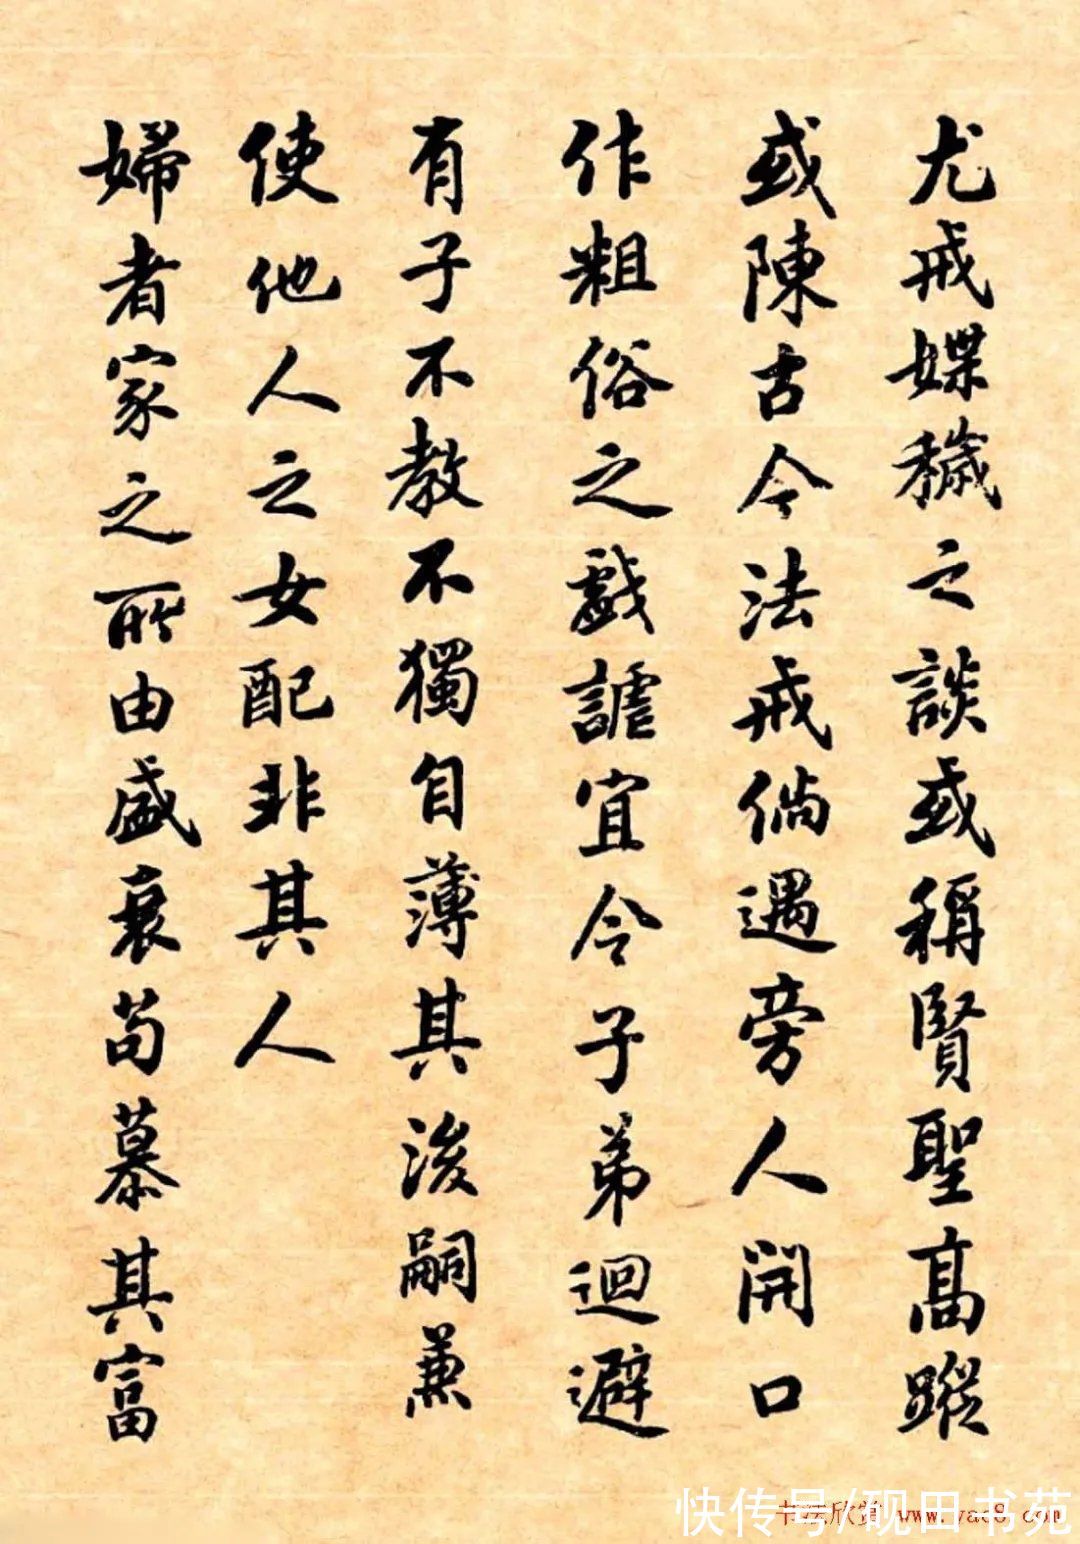 尤戒媟穢之談或稱賢聖高蹤
或陳古今法戒倘遇旁人開口
作粗俗之戲謔宜令子弟迴避
有子不教不獨自薄其後嗣兼
使他人之女配非其人
婦者家之所由盛衰苟慕其富
书法欣赏 www.yac8.com
快传号/砚田书苑